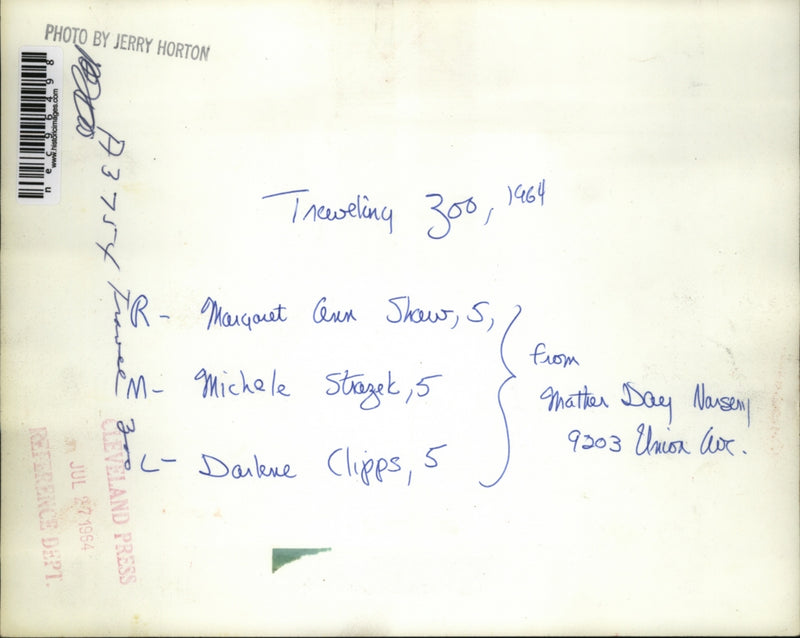 PHOTO BY JERRY HORTON
nec96498
www.historicimages.com
A 3754 Travel Zoo
Traveling Zoo, 1964
R- Margaret Ann Shaw, 5,
M- Michele Strazek, 5
L- Darlene Clipps, 5
from
Mather Day Nursery
9203 Union Ave.
CLEVELAND PRESS
JUL 27 1964
REFERENCE DEPT.